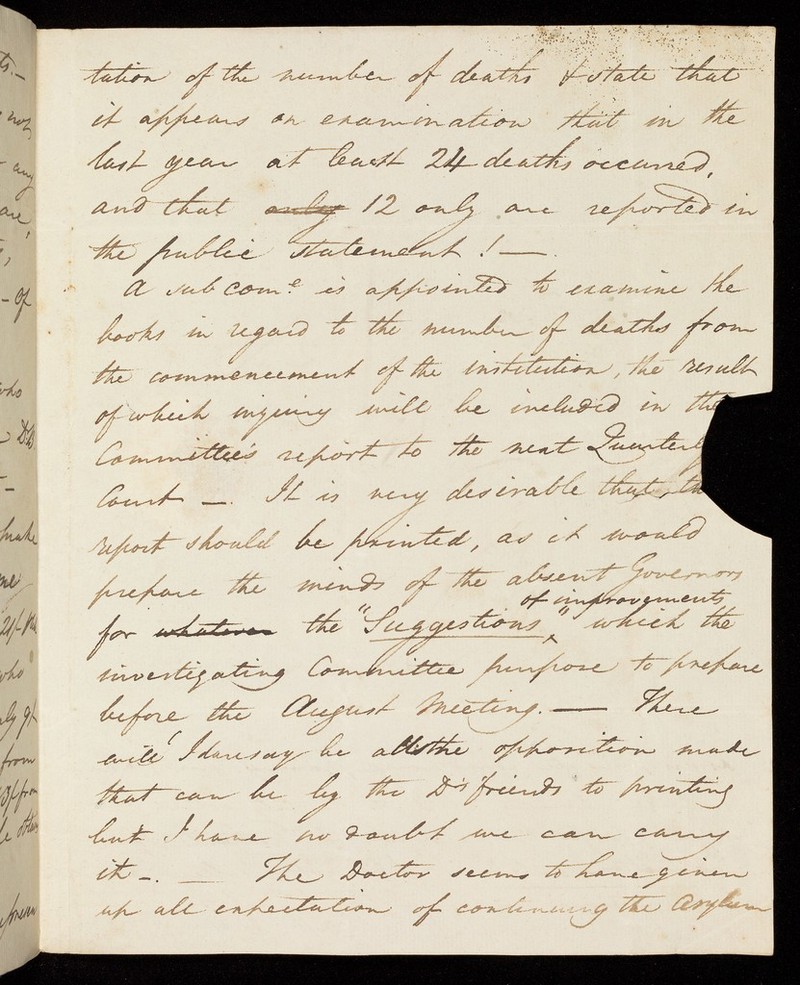 tation of the number of deaths & state that
it appears on examination that in the
last year at least 24 deaths occurred,
and that only 12 only are reported in
the public statement! —.
A sub comᵉ is appointed to examine the
books in regard to the number of deaths from
the commencement of the institution, the result
of which inquiry will be included in the
Committee's report to the next Quarterly
Court —. It is very desirable that, th
report should be printed, as it would
prepare the minds of the absent Governors
for whatever the "Suggestions of improvements" which the
investigating Committee purpose to prepare
before the August Meeting. — There
will I daresay be all the opposition made
that can be by the Dʳˢ friends to printing
but I have no doubt we can carry
it —. — The Doctor seems to have given
up all expectation of continuing the Asylum